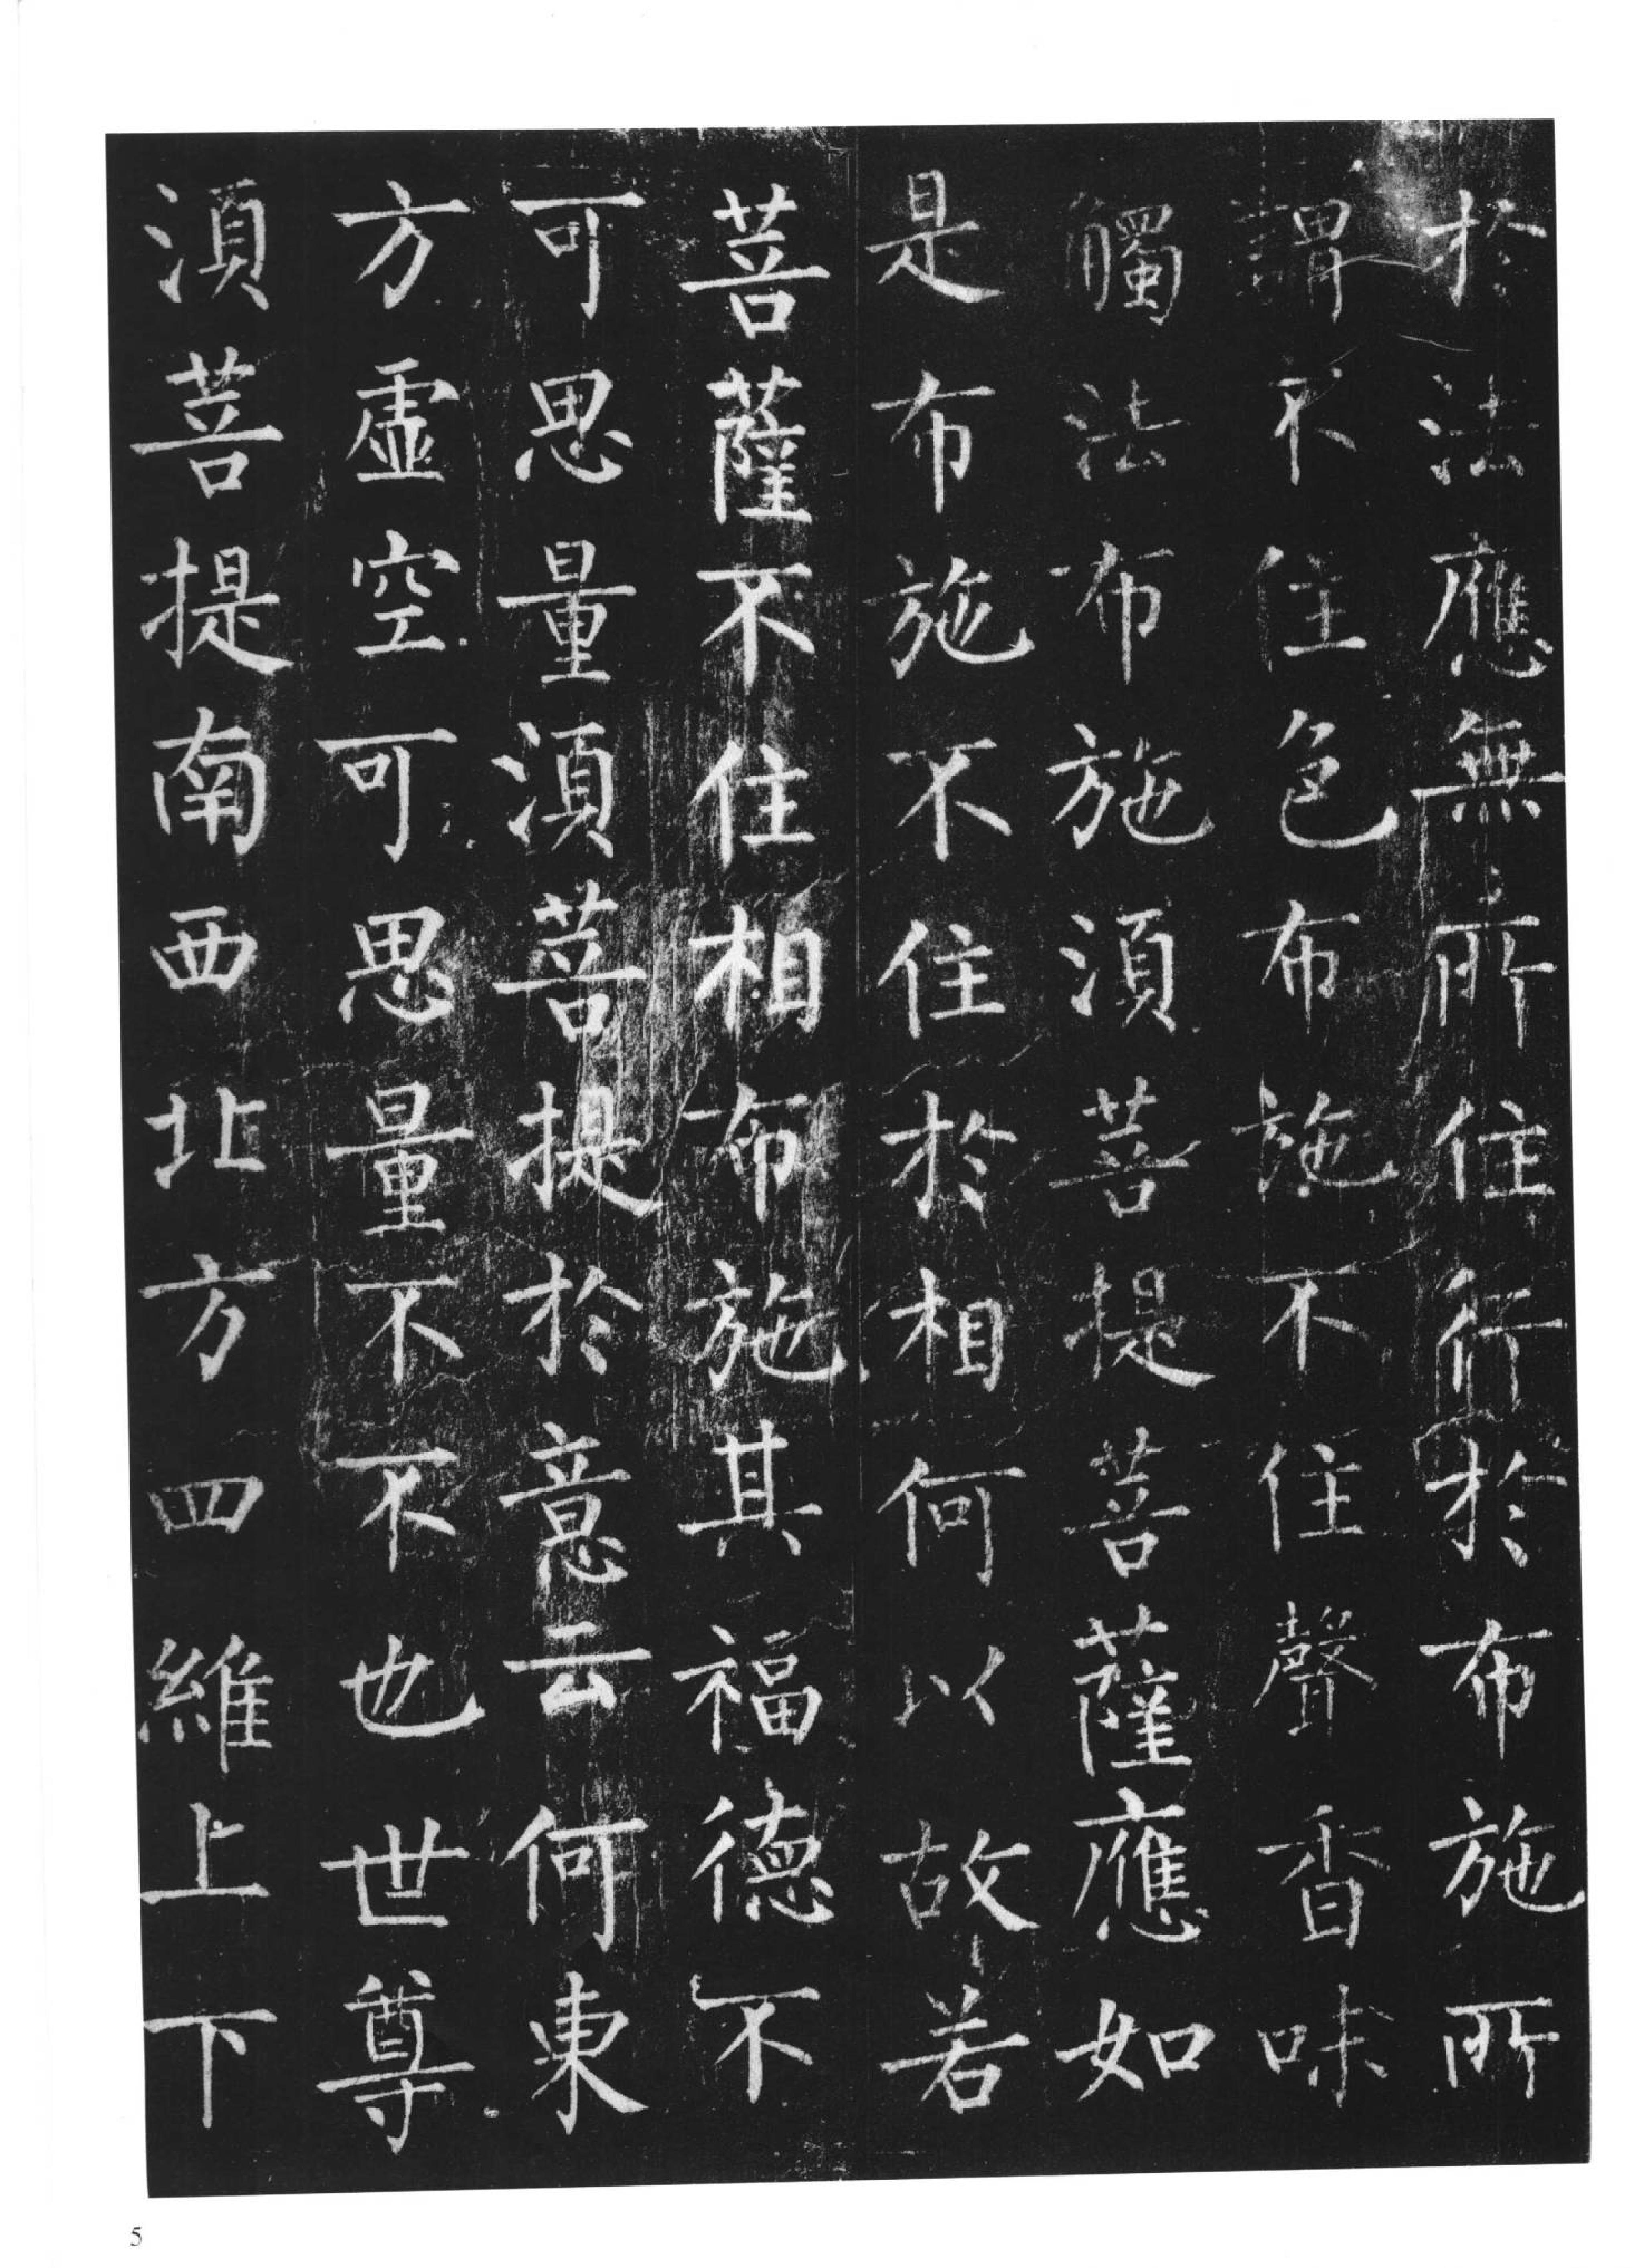 於法應無所住行於布施所
謂不住色布施不住聲香味
觸法布施湏菩提菩薩應如
是布施不住於相何以故若
菩薩不住相布施其福德不
可思量湏菩提於意云何東
方虛空可思量不不也世尊
湏菩提南西北方四維上下
5